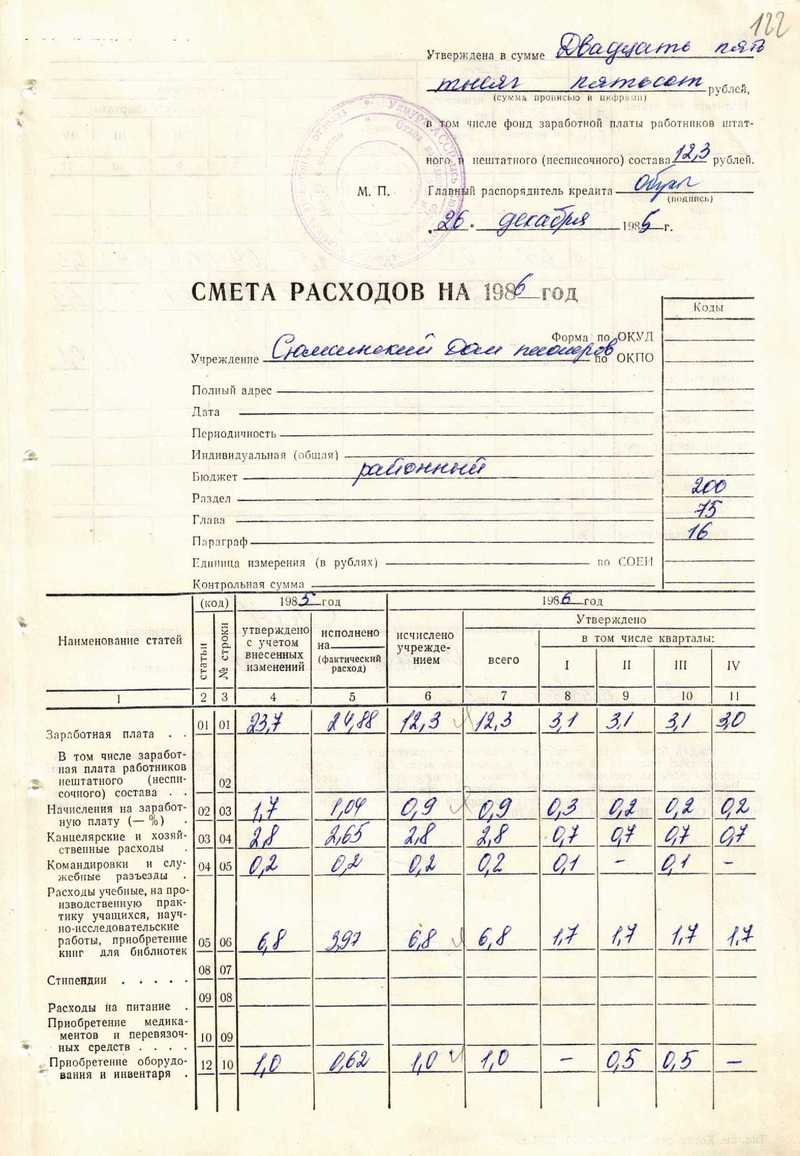 122
Утверждена в сумме Двадцать пять
тысяч пятьсот рублей,
(сумма прописью и цифрами)
в том числе фонд заработной платы работников штат-
ного и нештатного (несписочного) состава 12,3 рублей.
М. П. Главный распорядитель кредита
(подпись)
„26" декабря 1985 г.
СМЕТА РАСХОДОВ НА 1986 год
Коды
Форма по ОКУД
Учреждение Сюмсинский Дом пионеров по ОКПО
Полный адрес
Дата
Периодичность
Индивидуальная (общая)
Бюджет районный
Раздел 200
Глава 75
Параграф 16
Единица измерения (в рублях) по СОЕИ
Контрольная сумма
Наименование статей (код) 1985 год 1986 год
статьи № строки утверждено с учетом внесенных изменений исполнено на (фактический расход) исчислено учрежде-нием Утверждено
всего в том числе кварталы:
I II III IV
1 2 3 4 5 6 7 8 9 10 11
Заработная плата . . 01 01 23,7 24,88 12,3 12,3 3,1 3,1 3,1 3,0
В том числе заработ-
ная плата работников
нештатного (неспи-
сочного) состава . . 02
Начисления на заработ-
ную плату (— %) . 02 03 1,7 1,04 0,9 0,9 0,3 0,2 0,2 0,2
Канцелярские и хозяй-
ственные расходы . 03 04 2,8 2,65 2,8 2,8 0,7 0,7 0,7 0,7
Командировки и слу-
жебные разъезды . 04 05 0,2 0,2 0,2 0,2 0,1 – 0,1 –
Расходы учебные, на про-
изводственную прак-
тику учащихся, науч-
но-исследовательские
работы, приобретение
книг для библиотек 05 06 6,8 3,97 6,8 6,8 1,7 1,7 1,7 1,7
Стипендии . . . . . 08 07
Расходы на питание . 09 08
Приобретение медика-
ментов и перевязоч-
ных средств . . . . 10 09
Приобретение оборудо-
вания и инвентаря . 12 10 1,0 0,62 1,0 1,0 – 0,5 0,5 –